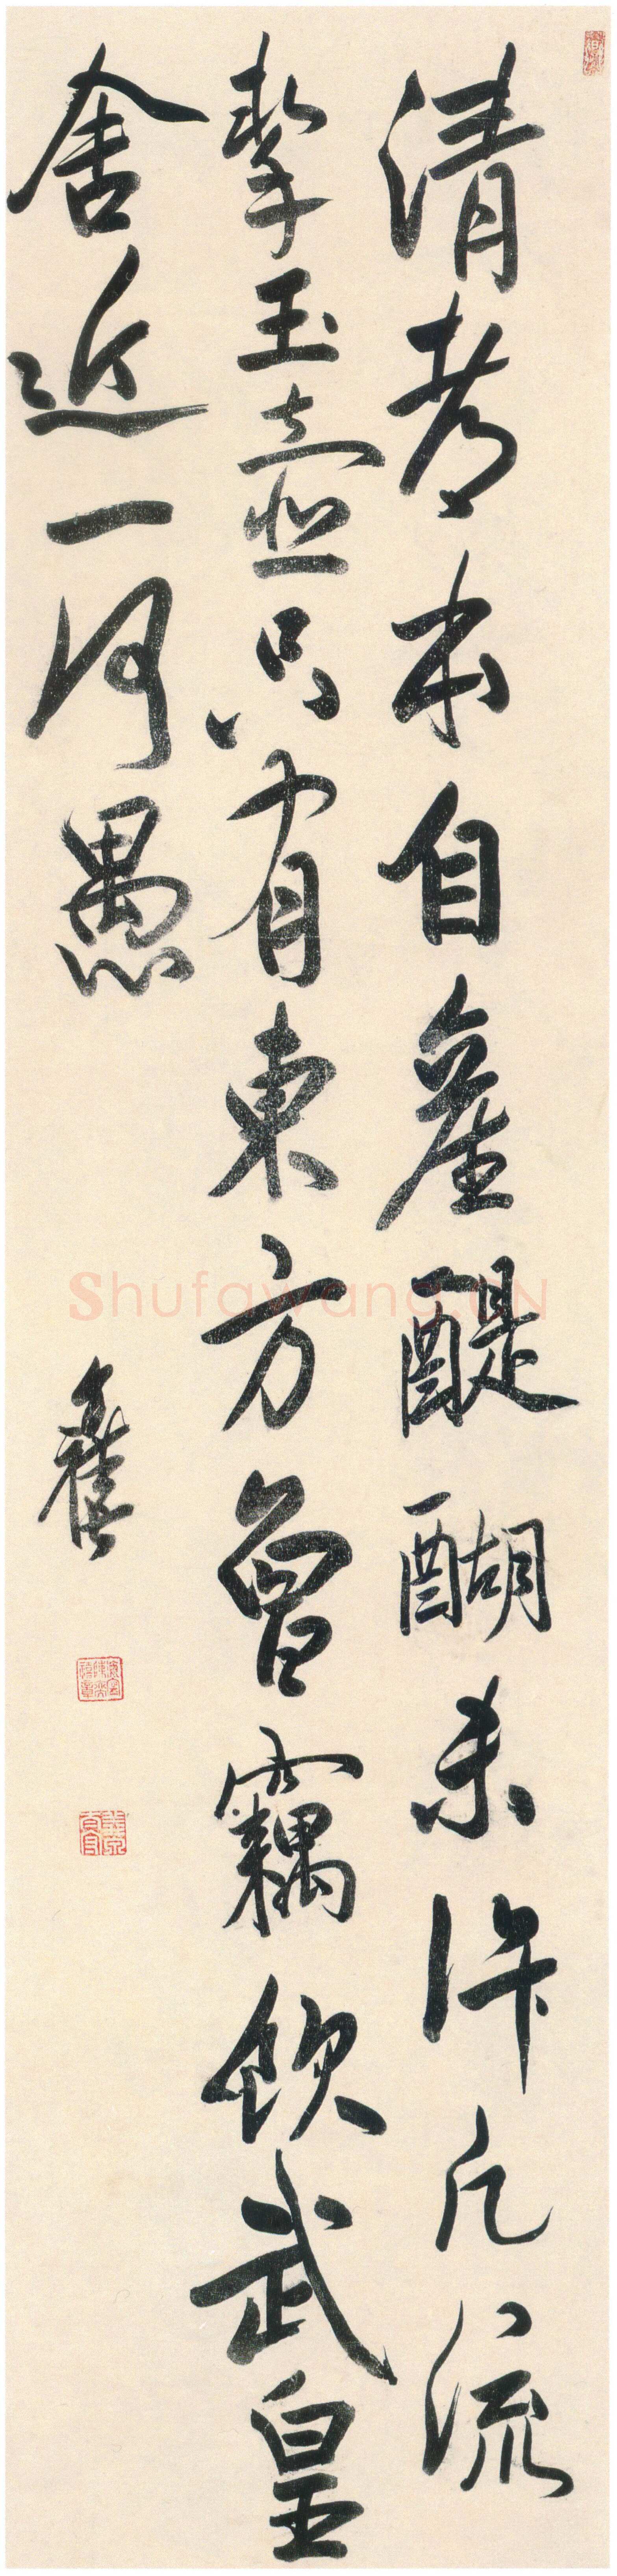 清都本自產醍醐未許凡流
挈玉壺只有東方曾竊飲武皇
舍近一何愚
奕禧
Shufawang.CN